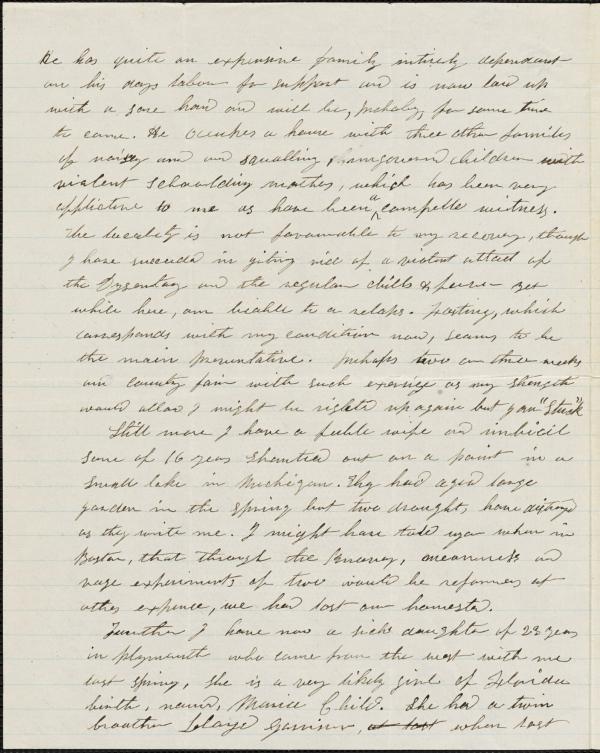 He has quite an expensive family intirely dependant
on his days labor for support and is now laid up
with a sore hand and will be, probaly, for some time
to come. He occupies a house with three other families
of noisey and squalling children with
violent schoolding mothers, which has been very
afflictive to me as have been a compelled witness.
The locality is not favourable to my recovery, though
I have succeeded in giting rid of a violent attact of
the Dysentary and the regular chills & fever yet
while here, am liable to a relaps. Fasting, which
corresponds with my condition now, seams to be
the main preventative. Perhaps two or three weeks
on country fair with such exercise as my strength
would allow I might be righted up again but I am "Stuck"
Still more I have a feeble wife and imbicil
sone of 16 years shantied out on a point in a
small lake in Michigan. They had a good large
garden in the spring but two droughts, have distroyed
as they write me. I might have told you when in
Boston, that through the meanness and
experiments of two would be reformers at
others expence, we had lost our homested.
Further I have now a sick daughter of 23 years
in plymouth who came from the west with me
last spring, she is a very likely girl of Florida
birth, named, Maria Child. She had a twin
broather Loloyd Garrison, at last when last